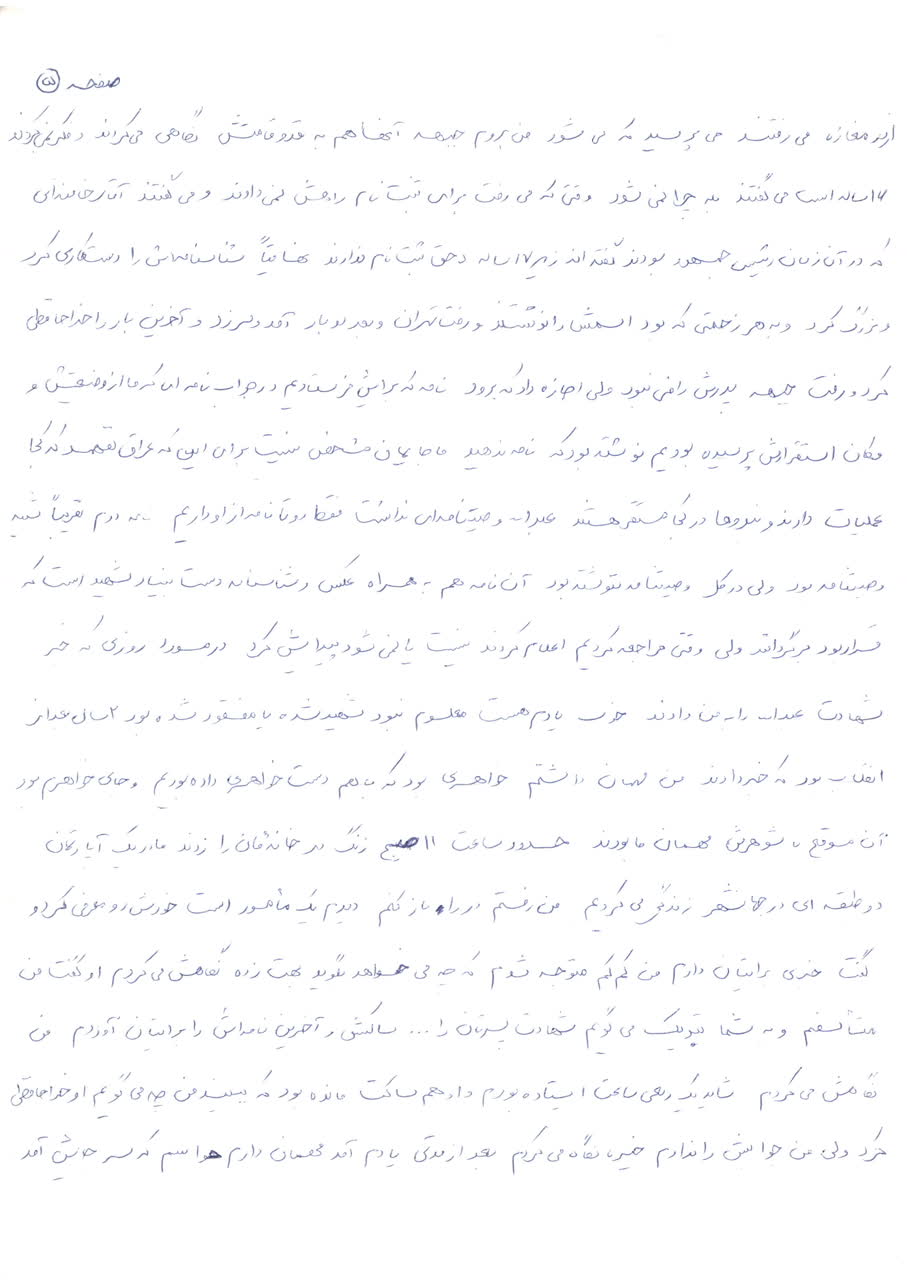 صفحه ۵
از در مغازه می رفتند می پرسید که می شود من بروم جبهه آنها هم به قد و قامتش نگاهی می کردند و فکر نمی کردند
ساله است می گفتند بله چرا نمی شود وقتی که می رفت برای ثبت نام راهش نمی دادند و می گفتند آقای خامنه ای
که در آن زمان رئیس جمهور بودند گفته اند زیر ۱۷ ساله حق ثبت نام ندارند نهایتاً شناسنامه اش را دستکاری کرد
و بزرگ کرد و به هر زحمتی که بود اسمش را نوشتند و رفت تهران و بعد دو بار آمد و سر زد و آخرین بار را خداحافظی
کرد و رفت جبهه پدرش راضی نبود ولی اجازه داد که برود نامه که برایش فرستادیم در جواب نامه ای که ما از وضعیتش و
مکان استقرارش پرسیده بودیم نوشته بود که نامه ندهید ما جایمان مشخص نیست برای این که عراق نفهمد که کجا
عملیات دارند و نیروها در کجا مستقر هستند عبداله وصیتنامه ای نداشت فقط دو تا نامه از او داریم نامه دوم تقریباً شبیه
وصیتنامه بود ولی در کل وصیتنامه ننوشته بود آن نامه هم به همراه عکس و شناسنامه دست بنیاد شهید است که
قرار بود برگردانند ولی وقتی مراجعه کردیم اعلام کردند نیست یا نمی شود پیدایش کرد در مورد روزی که خبر
شهادت عبداله را به من دادند خوب یادم هست معلوم نبود شهید شده یا مفقود شده بود ۲ سال بعد از
انقلاب بود که خبر دادند من مهمان داشتم خواهری بود که با هم دست خواهری داده بودیم و جای خواهرم بود
آن موقع با شوهرش مهمان ما بودند حدود ساعت ۱۱ صبح زنگ در خانه مان را زدند ما در یک آپارتمان
دو طبقه ای در جهانشهر زندگی می کردیم من رفتم در را باز کنم دیدم یک مأمور است خودش رو معرفی کرد و
گفت خبری برایتان دارم من کم کم متوجه شدم که چه می خواهد بگوید بهت زده نگاهش می کردم او گفت من
متأسفم و به شما تبریک می گویم شهادت پسرتان را... ساکش و آخرین نامه اش را برایتان آوردم من
نگاهش می کردم شاید یک ربعی ساعت ایستاده بودم و او هم ساکت مانده بود که ببیند من چه می گویم او خداحافظی
کرد ولی من جوابش را ندادم خیره نگاه می کردم بعد از مدتی یادم آمد مهمان دارم حواسم که سر جایش آمد